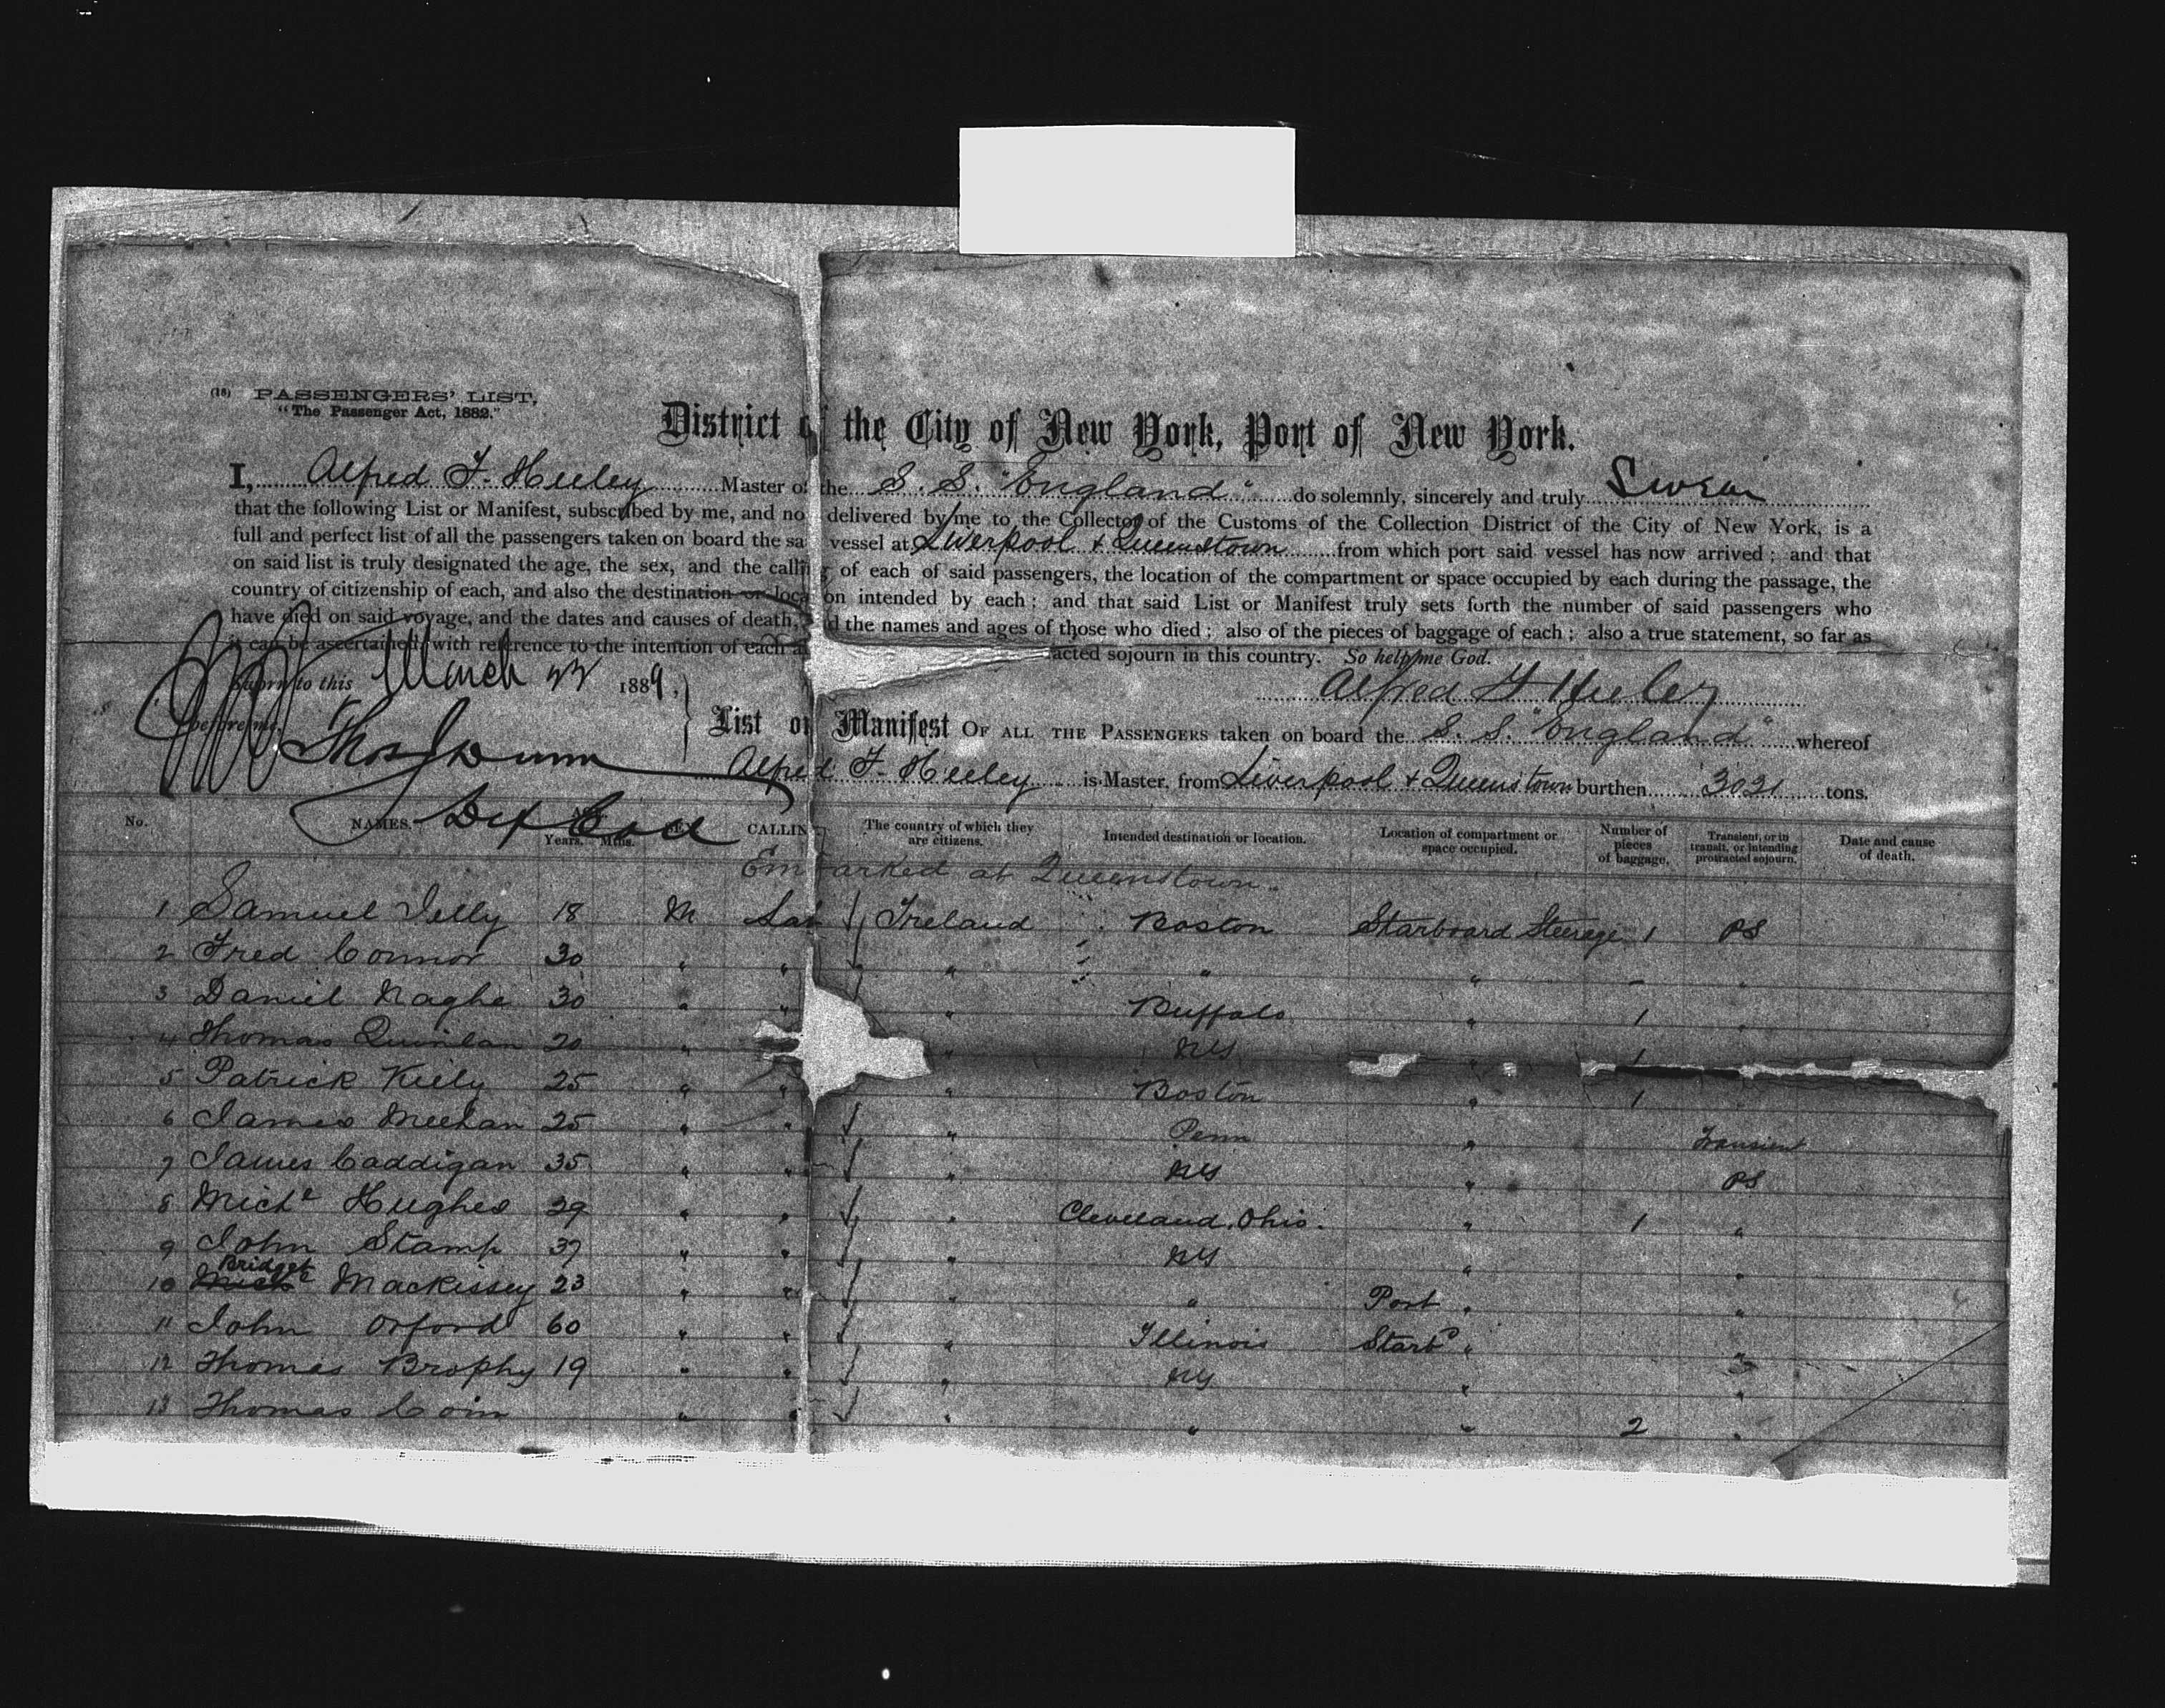 (18) PASSENGERS' LIST,
"The Passenger Act, 1882."
District of the City of New York, Port of New York.
I, Alfred F. Heeley Master of the S. S. "England" do solemnly, sincerely and truly Swear
that the following List or Manifest, subscribed by me, and no delivered by me to the Collector of the Customs of the Collection District of the City of New York, is a
full and perfect list of all the passengers taken on board the sa vessel at Liverpool & Queenstown from which port said vessel has now arrived; and that
on said list is truly designated the age, the sex, and the calling of each of said passengers, the location of the compartment or space occupied by each during the passage, the
country of citizenship of each, and also the destination or loca on intended by each; and that said List or Manifest truly sets forth the number of said passengers who
have died on said voyage, and the dates and causes of death, d the names and ages of those who died; also of the pieces of baggage of each; also a true statement, so far as
it can be ascertained, with reference to the intention of each a acted sojourn in this country. So help me God.
Sworn to this March 22 1889, Alfred F Heeley
before me,
Thos J Dunn
Dep Coll
List or Manifest OF ALL THE PASSENGERS taken on board the S. S. "England" whereof
Alfred F. Heeley is Master, from Liverpool & Queenstown burthen 3021 tons.
No. NAMES. Years. Mths. CALLIN The country of which they are citizens. Intended destination or location. Location of compartment or space occupied. Number of pieces of baggage. Transient, or in transit, or intending protracted sojourn. Date and cause of death.
Embarked at Queenstown.
1 Samuel Jelly 18 M Lab Ireland Boston Starboard Steerage 1 PS
2 Fred Connor 30 " " " " " - "
3 Daniel Naghe 30 " " " Buffalo " 1 "
4 Thomas Quinlan 20 " " NY " 1
5 Patrick Kiely 25 " " " Boston " 1 "
6 James Meehan 25 " " " Penn " Transient
7 James Caddigan 35 " " " NY " PS
8 Michl Hughes 29 " " " Cleveland, Ohio. " 1 "
9 John Stamp 37 " " " NY " "
Bridget
10 Michl Mackissey 23 " " " " Port " "
11 John Orford 60 " " " Illinois Starbd " "
12 Thomas Brophy 19 " " " NY " "
13 Thomas Coin " " " " " 2 "